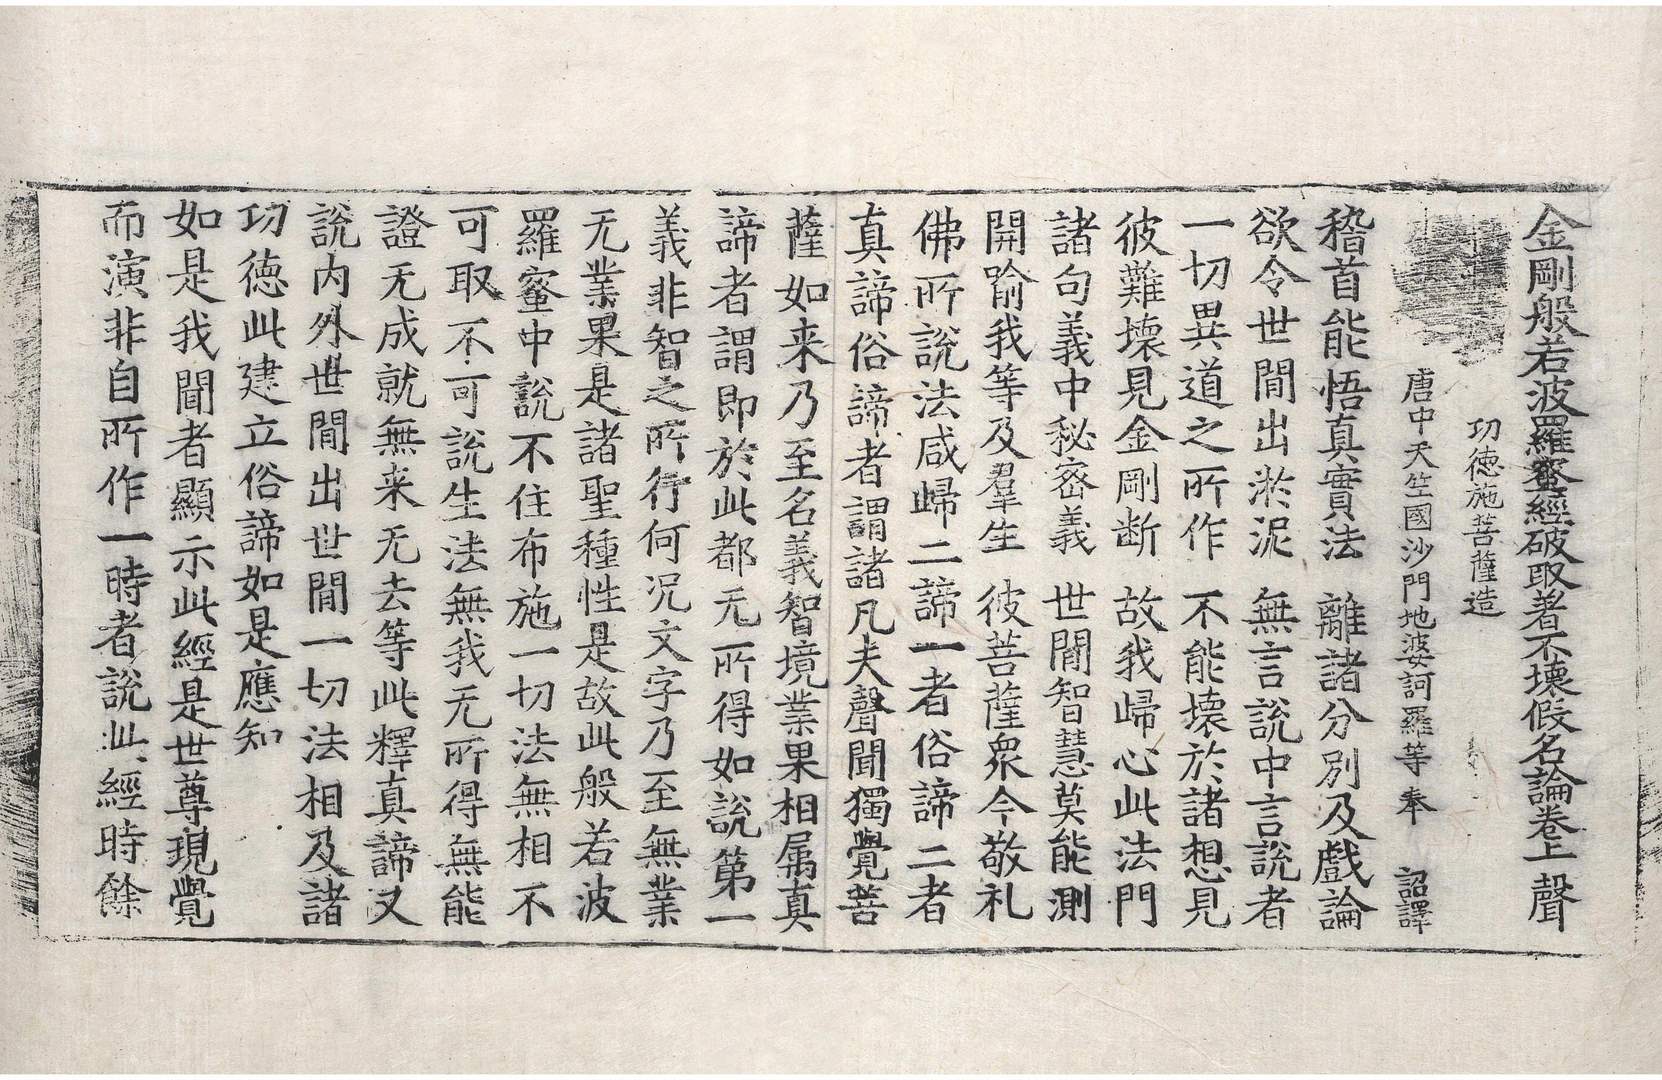 金剛般若波羅蜜經破取著不壞假名論卷上 聲
功德施菩薩造
唐中天竺國沙門地婆訶羅等奉 詔譯
稽首能悟真實法 離諸分別及戲論
欲令世間出淤泥 無言說中言說者
一切異道之所作 不能壞於諸想見
彼難壞見金剛断 故我歸心此法門
諸句義中秘密義 世間智慧莫能測
開喻我等及羣生 彼菩薩衆今敬礼
佛所說法咸歸二諦一者俗諦二者
真諦俗諦者謂諸凡夫聲聞獨覺菩
薩如来乃至名義智境業果相属真
諦者謂即於此都无所得如說第一
義非智之所行何况文字乃至無業
无業果是諸聖種性是故此般若波
羅蜜中說不住布施一切法無相不
可取不可說生法無我无所得無能
證无成就無来无去等此釋真諦又
說内外世間出世間一切法相及諸
功德此建立俗諦如是應知
如是我聞者顯示此經是世尊現覺
而演非自所作一時者說此經時餘